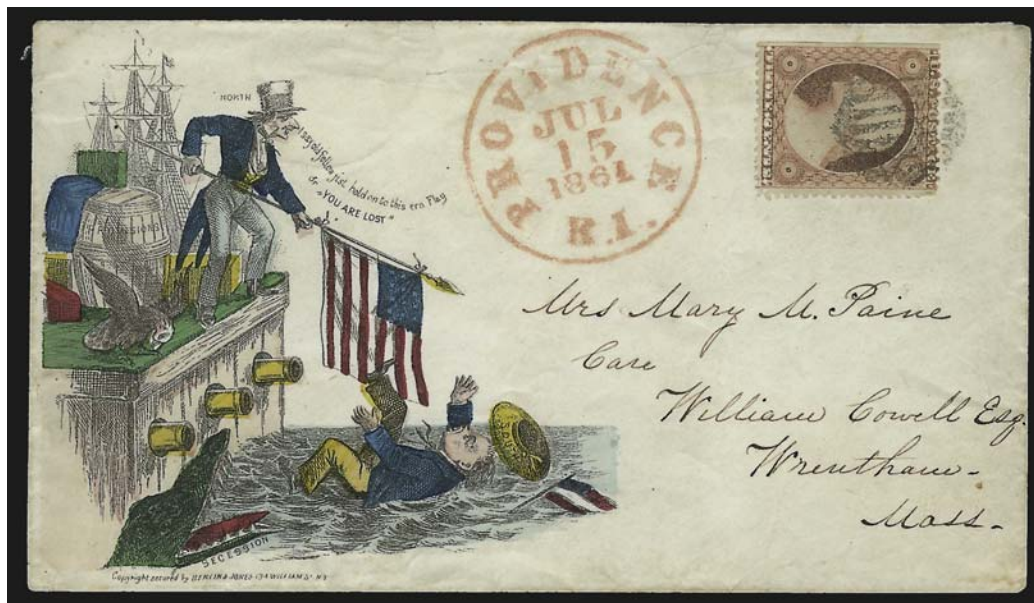 NORTH
I say old fellow jist hold on to this ere Flag
or "YOU ARE LOST"
PROVISIONS
SECESSION
Copyright secured by
WILLIAM St NY
PROVIDENCE
JUL
15
1861
R.I.
Mrs Mary M. Paine
Care
William Cowell Esq.
Wrentham-
Mass-